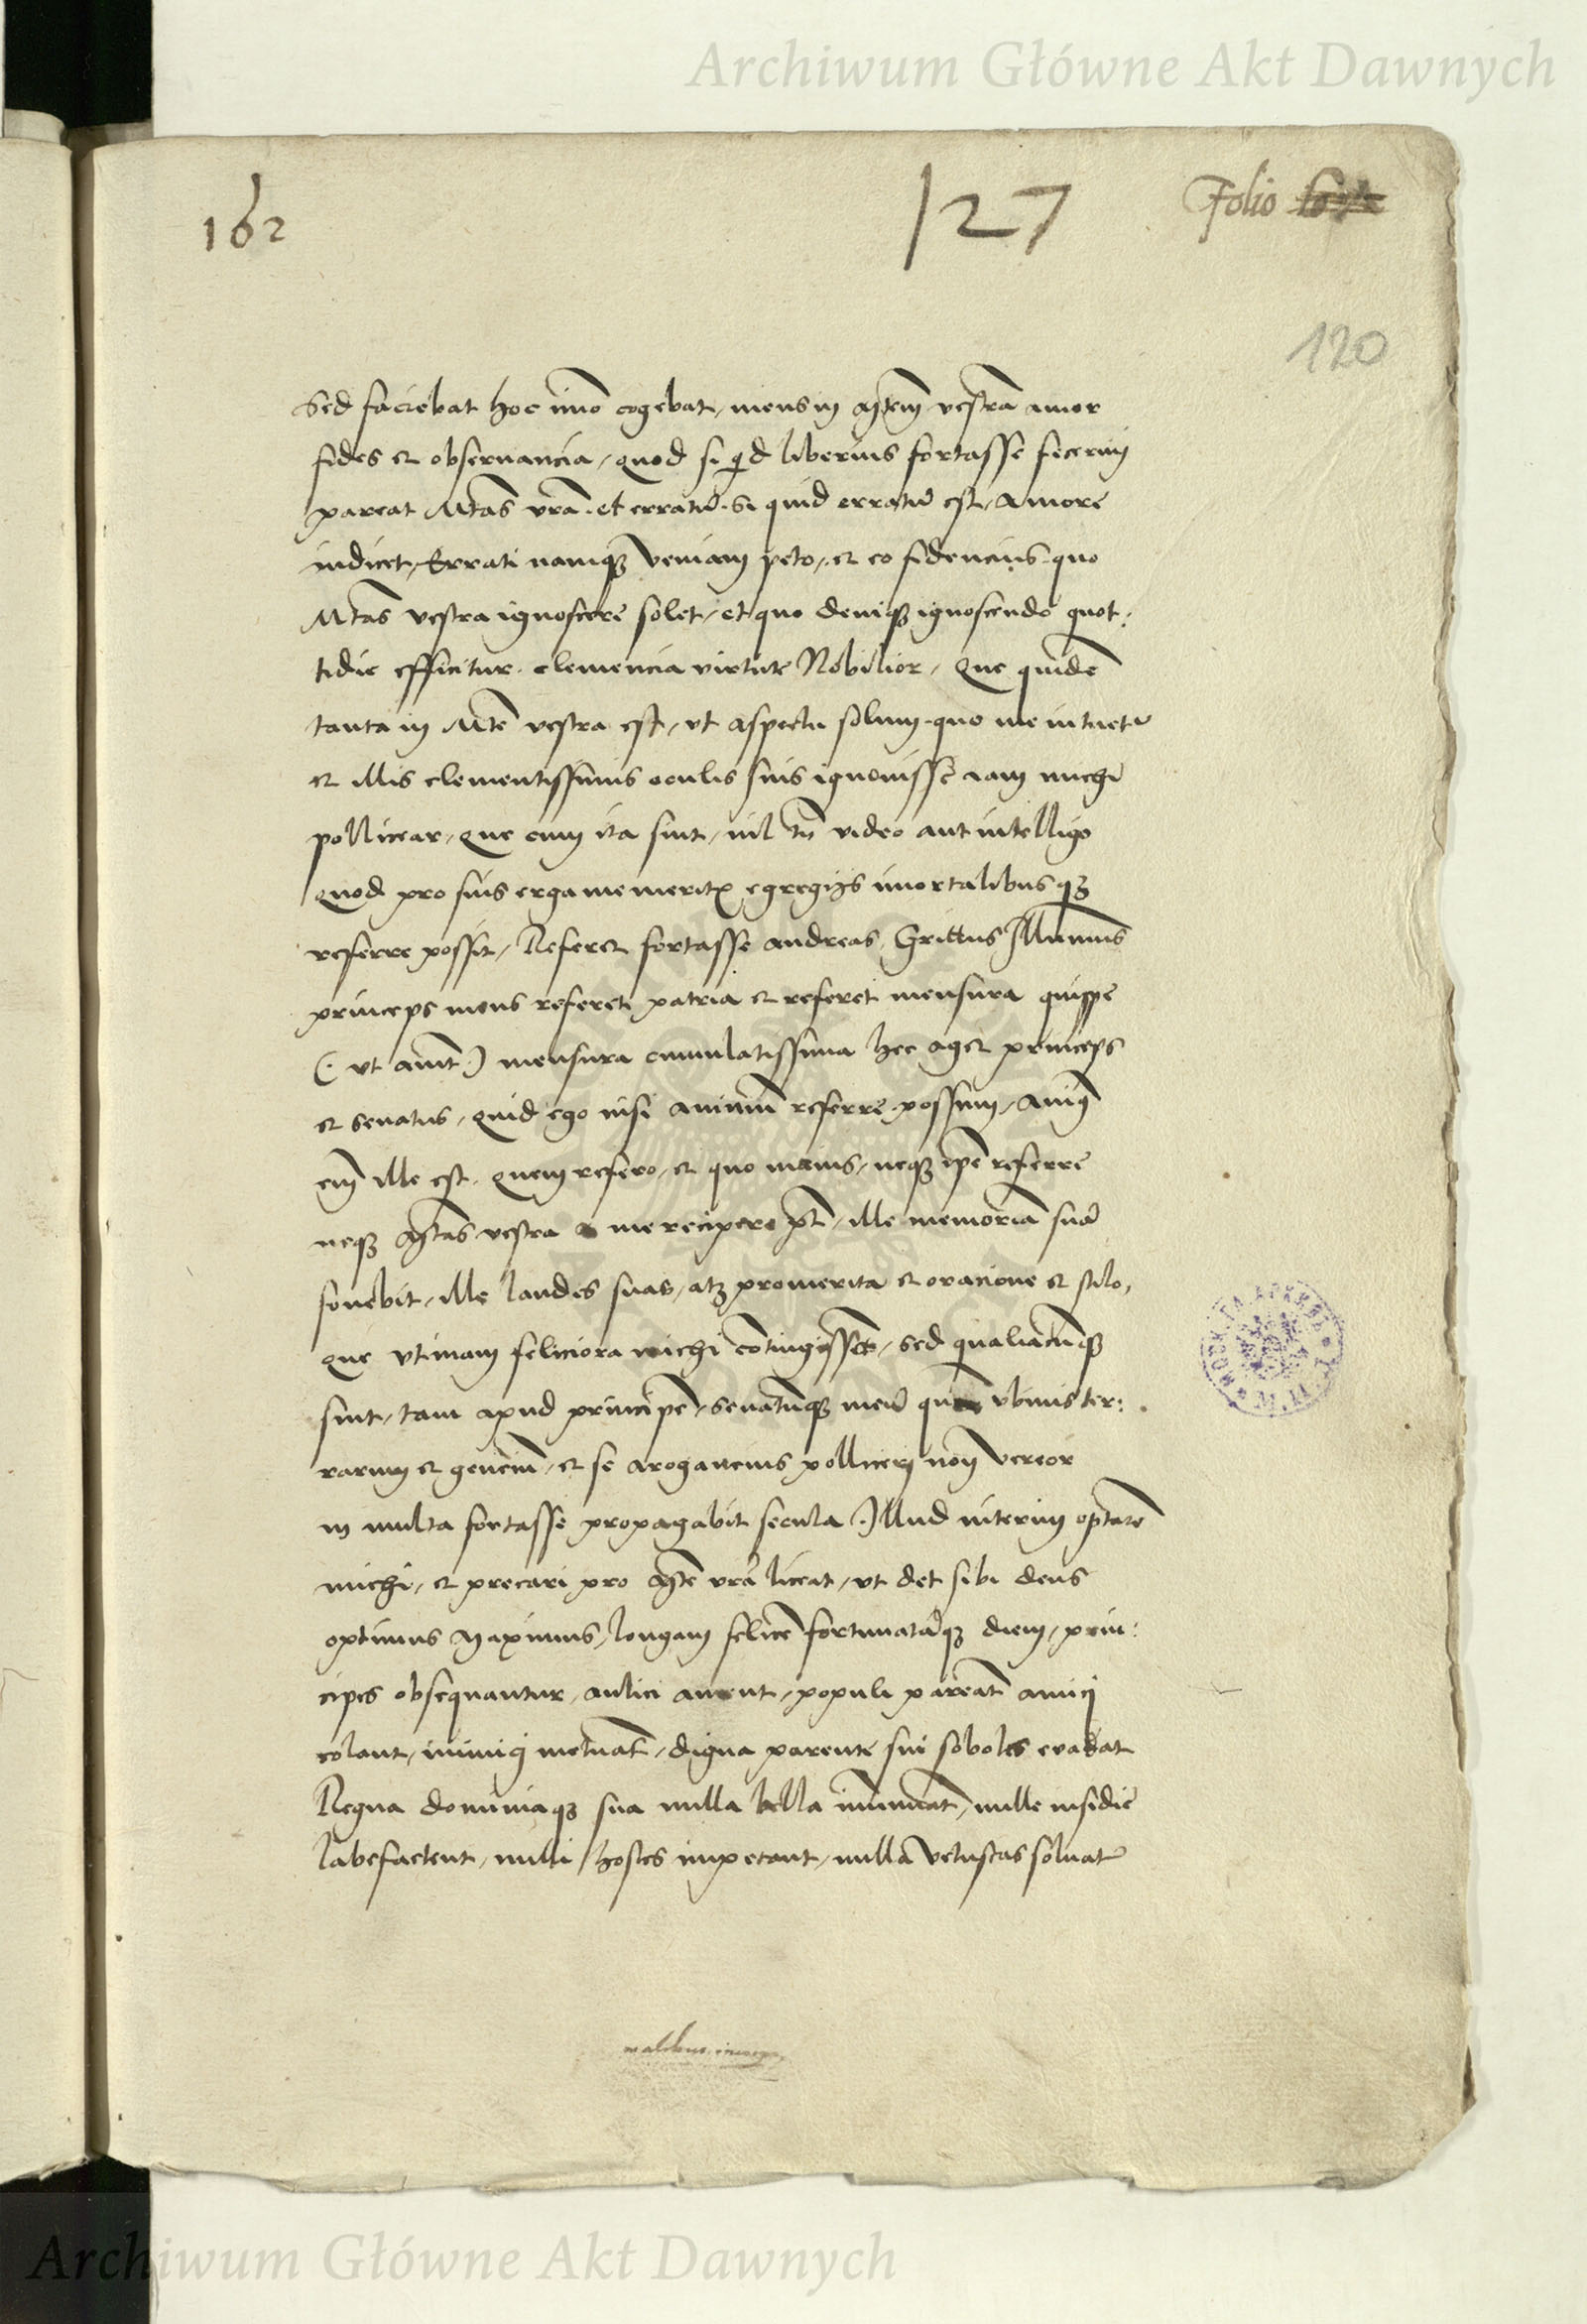 Archiwum Główne Akt Dawnych
162
127
Folio
120
Sed faciebat hoc imo cogebat, meus in Mtem vestra amor
fides et obseruancia, quod si qd liberius fortasse fecerim
pareat Mtas vra. et erratu. Si quid erratu est, Amore
iudicet, Errati namq veniam peto, et eo fidencius quo
Mtas vestra ignoscere solet, et quo deniq ignoscendo quot:
tidie efficitur. clemencia virtute Nobilior, Que quide
tanta in Mte vestra est, vt aspectu solum quo me intuetr
et illis clementissimis oculis suis ignouisse iam michi
pollicear, Que cum ita sint, nil tn video aut intelligo
quod pro suis erga me meritis egregijs imortalibusq
referre possit, Referet fortasse andreas Grittus Illmus
princeps meus referet patria et referet mensura quippe
(: vt aiut :) mensura cumulatissima hec aget princeps
et senatus, Quid ego nisi animu referre possum, Anim
em ille est, quem refero, et quo maius, neq ipe referre
neq Mtas vestra a me recipere pt, ille memoria sua
fouebit, ille laudes suas, atq promerita et oracione et stilo,
que vtinam feliciora michi cotingissent, sed qualiacuq
sint, tam apud principe, senatuq meu qu vbiuis ter:
rarum et genciu, et se arogancius pollicerj non vereor
in multa fortasse propagabit secula. Illud interim optare
michi, et precari pro Mte vra liceat, vt det sibi deus
optimus Maximus, longam felice fortunataq diem, prin:
cipes obsequantur, aulici ament, populi pareat amicj
colant, inimicj metuat, digna parente sui soboles euadat
Regna dominiaq sua nulla bella iminuat, nulle insidie
labefactent, nulli hostes impetant, nulla vetustas soluat
Archiwum Główne Akt Dawnych